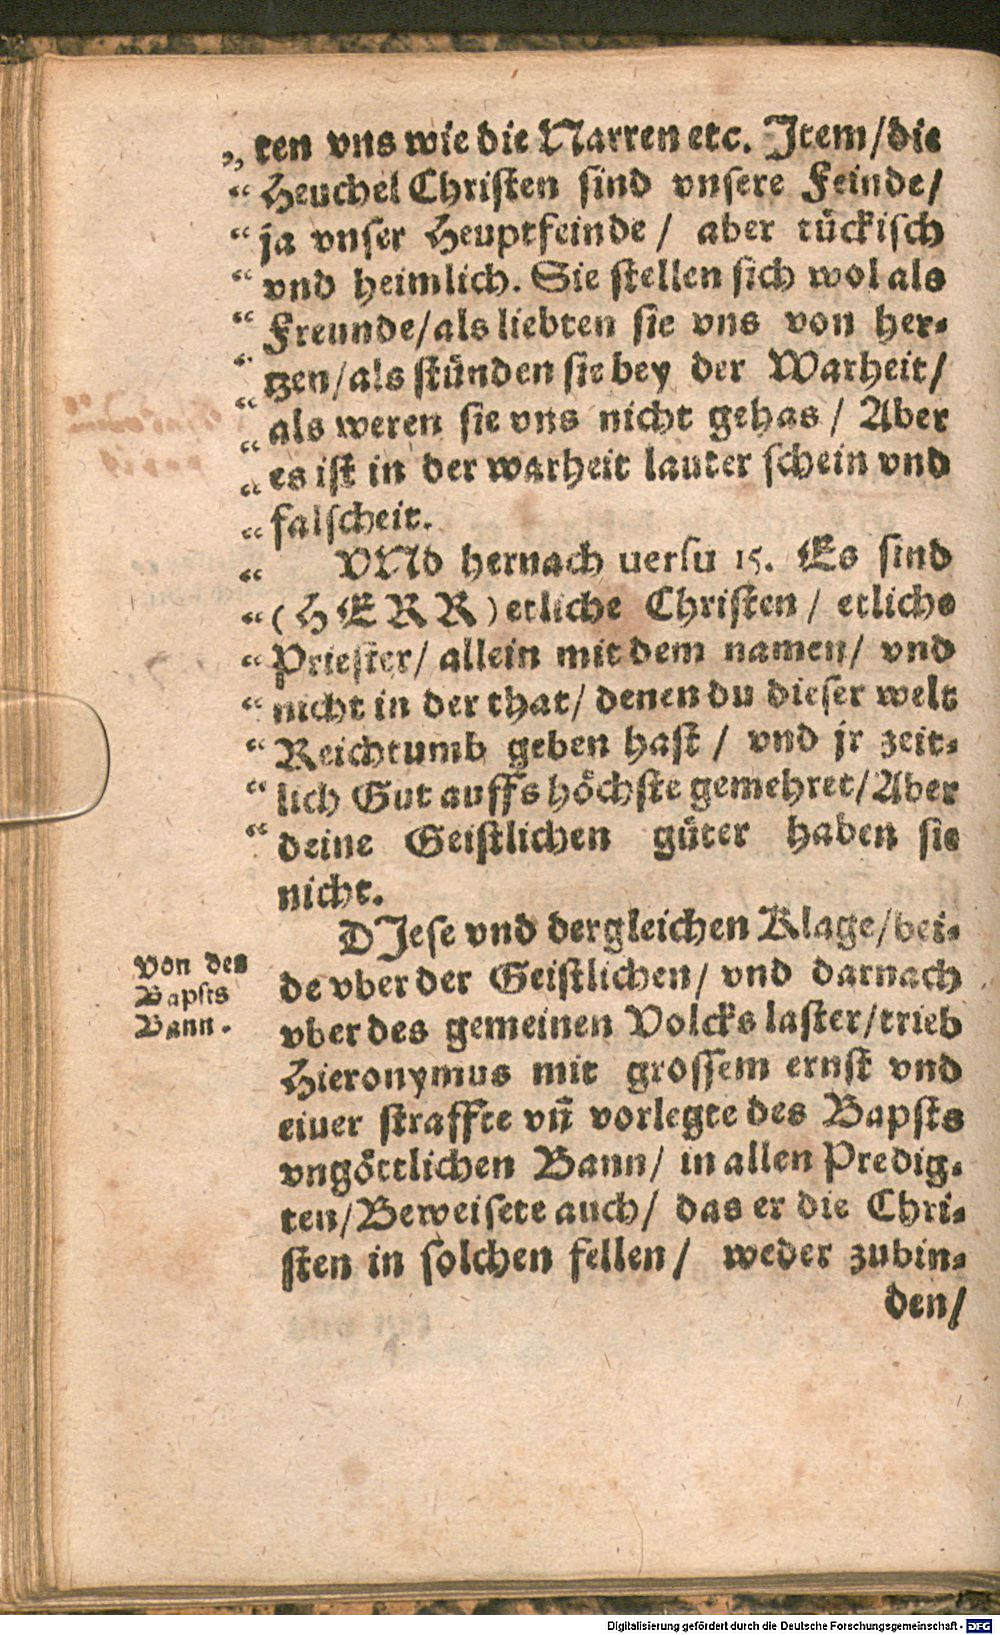 „ ten vns wie die Narren etc. Item/die
“ Heuchel Christen sind vnsere Feinde/
“ ja vnser Heuptfeinde / aber tückisch
“ vnd heimlich. Sie stellen sich wol als
“ Freunde/als liebten sie vns von her⸗
“ tzen/als stünden sie bey der Warheit/
“ als weren sie vns nicht gehas / Aber
“ es ist in der warheit lauter schein vnd
“ falscheit.
“ VNd hernach uersu 15. Es sind
“ (HERR) etliche Christen / etliche
“ Priester/ allein mit dem namen/ vnd
“ nicht in der that/ denen du dieser welt
“ Reichtumb geben hast / vnd jr zeit⸗
“ lich Gut auffs höchste gemehret/Aber
“ deine Geistlichen güter haben sie
nicht.
DJese vnd dergleichen Klage/bei⸗
de vber der Geistlichen/ vnd darnach
vber des gemeinen Volcks laster/trieb
Hieronymus mit grossem ernst vnd
eiuer straffte vn̄ vorlegte des Bapsts
vngöttlichen Bann/ in allen Predig⸗
ten/Beweisete auch/ das er die Chri⸗
sten in solchen fellen/ weder zubin⸗
den/
Von des
Bapsts
Bann.
Digitalisierung gefördert durch die Deutsche Forschungsgemeinschaft - DFG